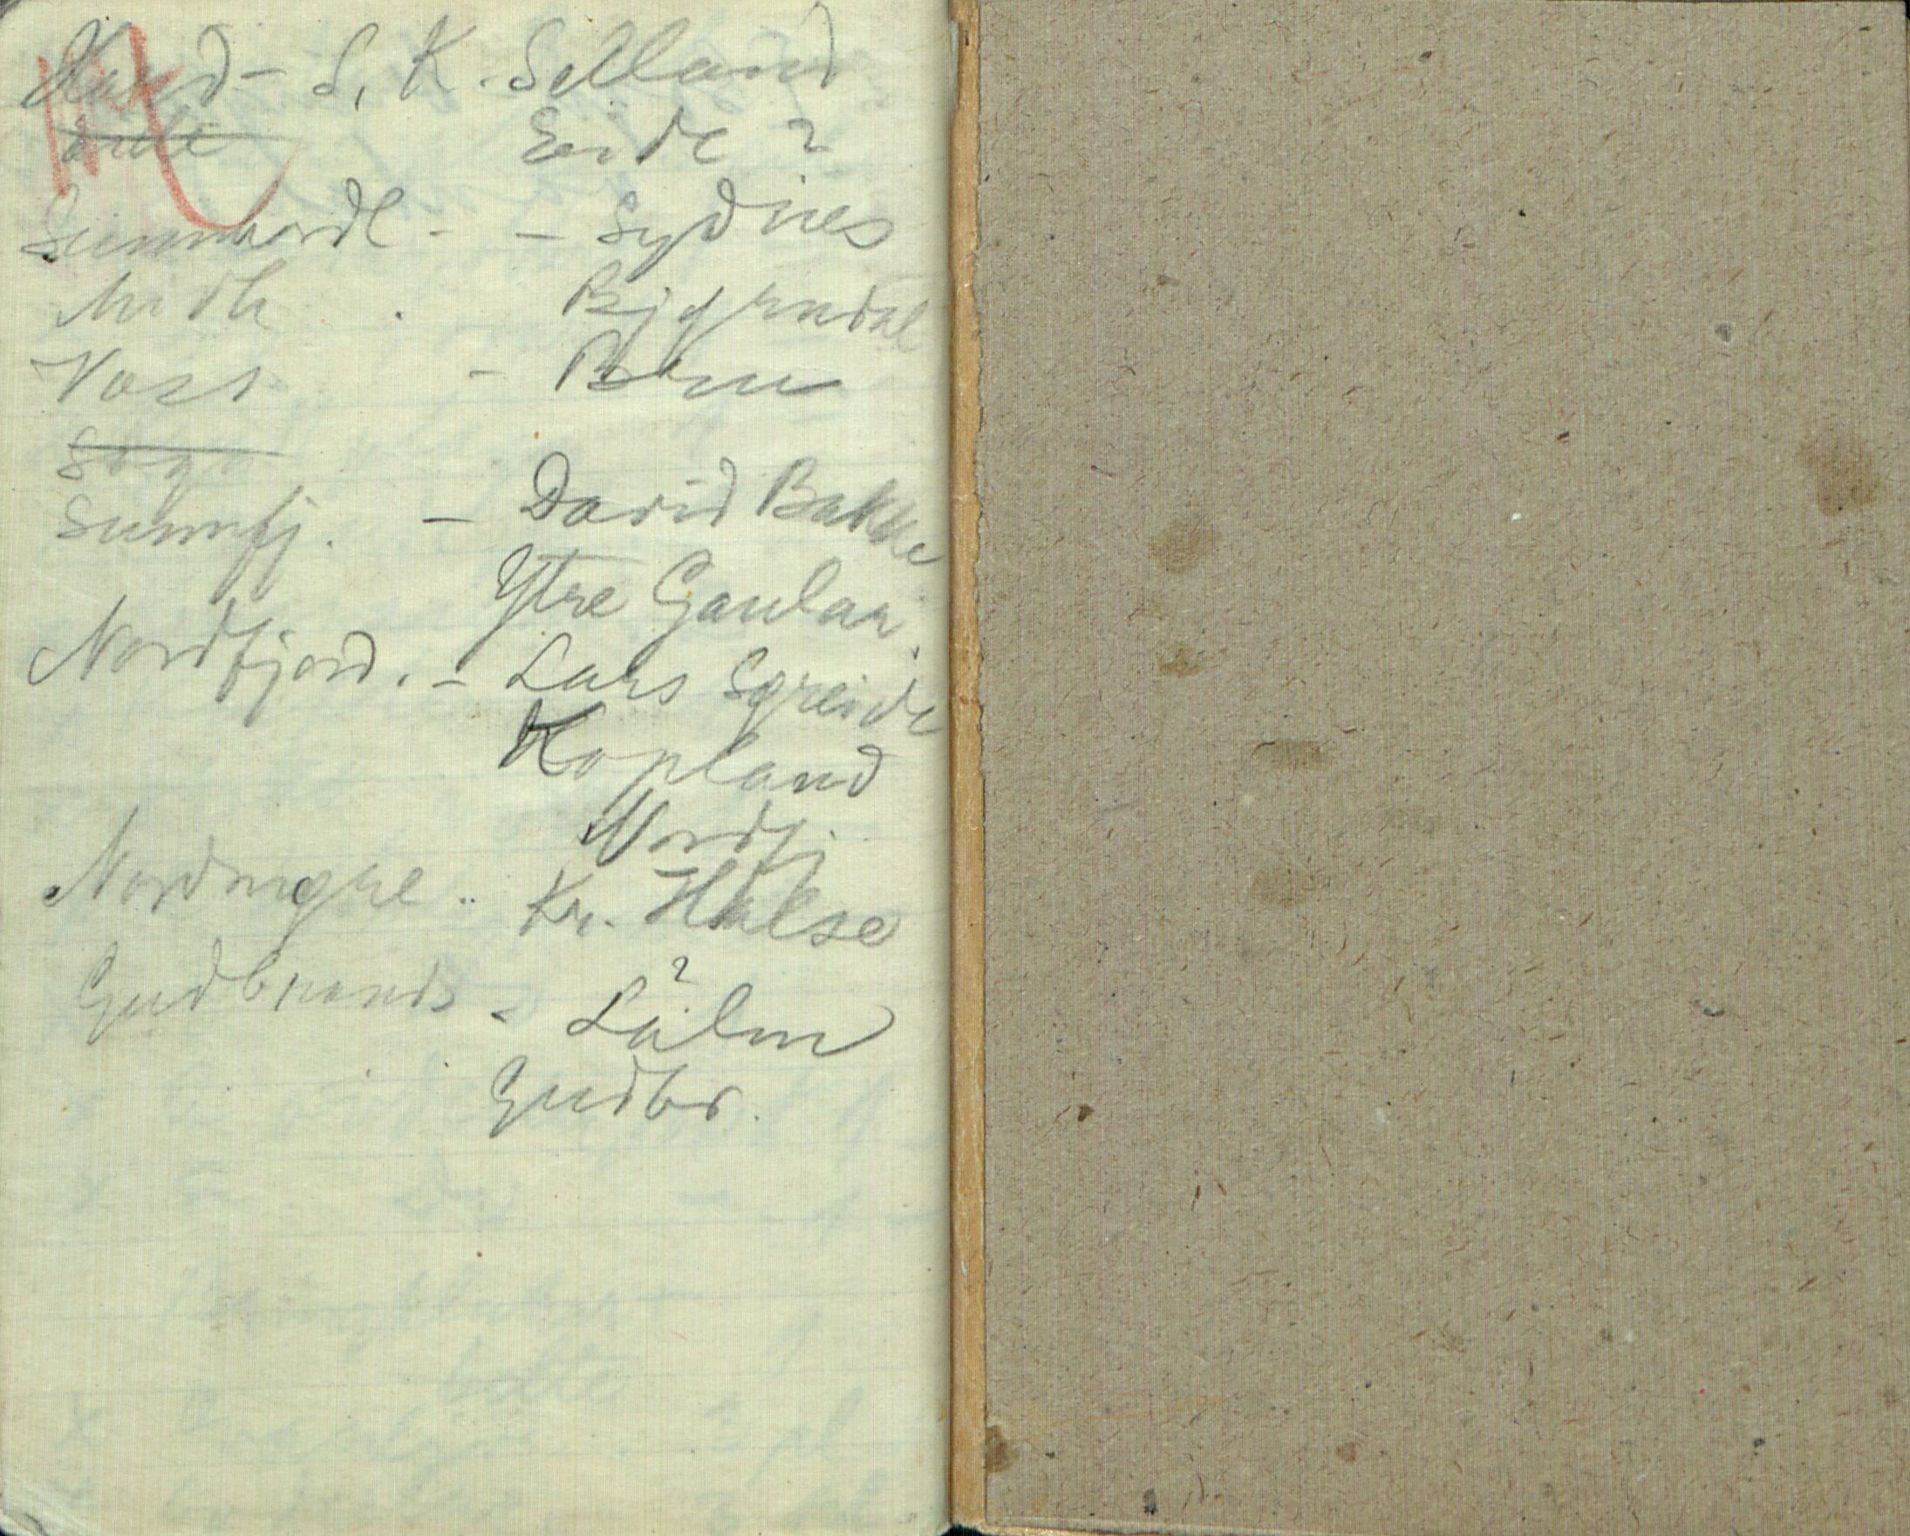 Hard - S. K. Selland
Eide ?
Sunnhordl. - - Sydnes
Midh . Bjørndal
Voss -
Sogn
Sunnfj. - David Bakke
Ytre Gaular.
Nordfjord. - Lars Søreide
Hopland
Nordfj.
Nordmøre .. Kr. Halse
Gudbrands - Lalm ?
Gudbr.